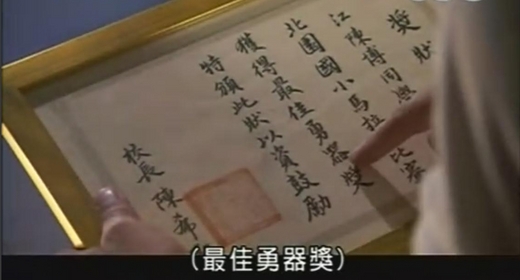 獎狀
江陳博同
北園國小馬拉比賽
獲得最佳勇器獎
特頒此狀以資鼓勵
校長 陳希
（最佳勇器獎）